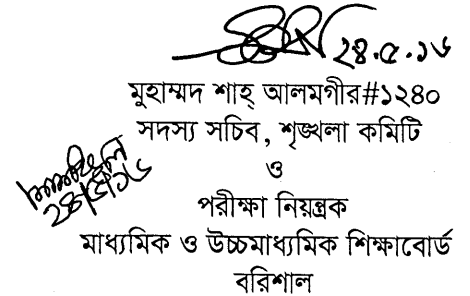 ২৪.৫.১৬
মুহাম্মদ শাহ্ আলমগীর#১২৪০
সদস্য সচিব, শৃঙ্খলা কমিটি
ও
পরীক্ষা নিয়ন্ত্রক
মাধ্যমিক ও উচ্চমাধ্যমিক শিক্ষাবোর্ড
বরিশাল